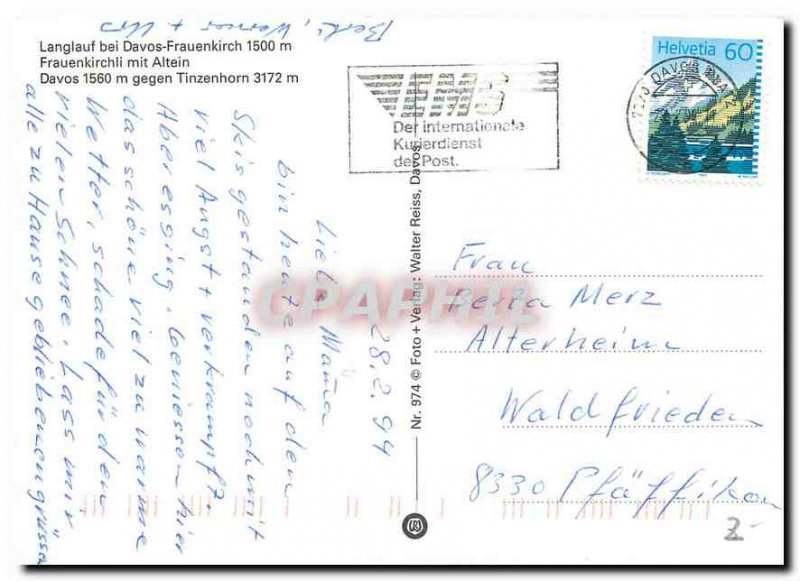 Langlauf bei Davos-Frauenkirch 1500 m
Frauenkirchli mit Altein
Davos 1560 m gegen Tinzenhorn 3172 m
EMS
Der internationale
Kurierdienst
der Post.
Helvetia 60
DAVOS
28.2.94
Liebi Mama
bin heute auf den
Skis gestanden noch mit
viel Angst + verkrampft.
Aber es ging, geniesse hier
das schöne viel zu warme
Wetter, schade für den
vielen Schnee. Lass mir
alle zu Hause gebliebenen grüssen
Werner + Urs
Nr. 974 © Foto + Verlag: Walter Reiss, Davos
Frau
Berta Merz
Alterheim
Waldfrieden
8330 Pfäffikon
2-
CPAPHIL